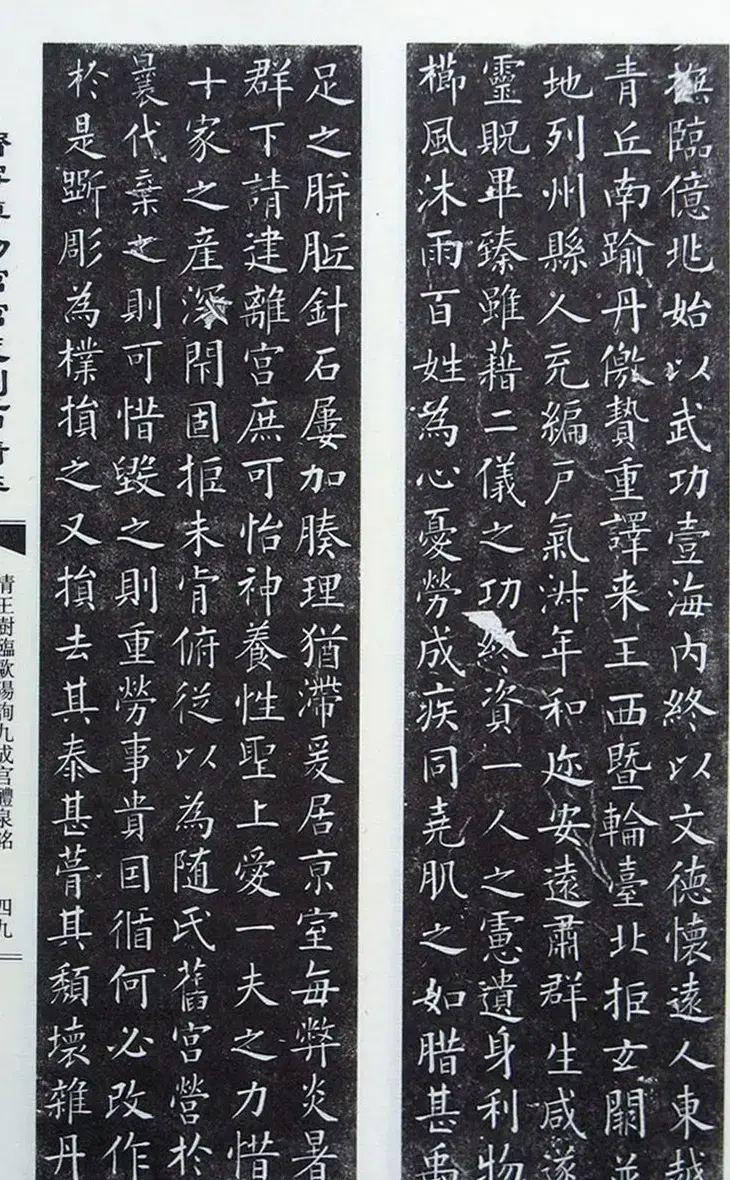 撫臨億兆始以武功壹海内終以文德懷遠人東越
青丘南踰丹儌贄重譯来王西暨輪臺北拒玄闕並
地列州縣人充編戶氣淑年和迩安遠肅群生咸遂
靈貺畢臻雖藉二儀之功終資一人之慮遺身利物
櫛風沐雨百姓為心憂勞成疾同堯肌之如腊甚禹
足之胼胝針石屢加腠理猶滯爰居京室每弊炎暑
群下請建離宮庶可怡神養性聖上愛一夫之力惜
十家之産深閇固拒未肯俯從以為随氏舊宮營於
曩代棄之則可惜毀之則重勞事貴因循何必改作
於是斲彫為樸損之又損去其泰甚葺其頹壞雜丹
清王樹臨歐陽詢九成宫醴泉銘
四九